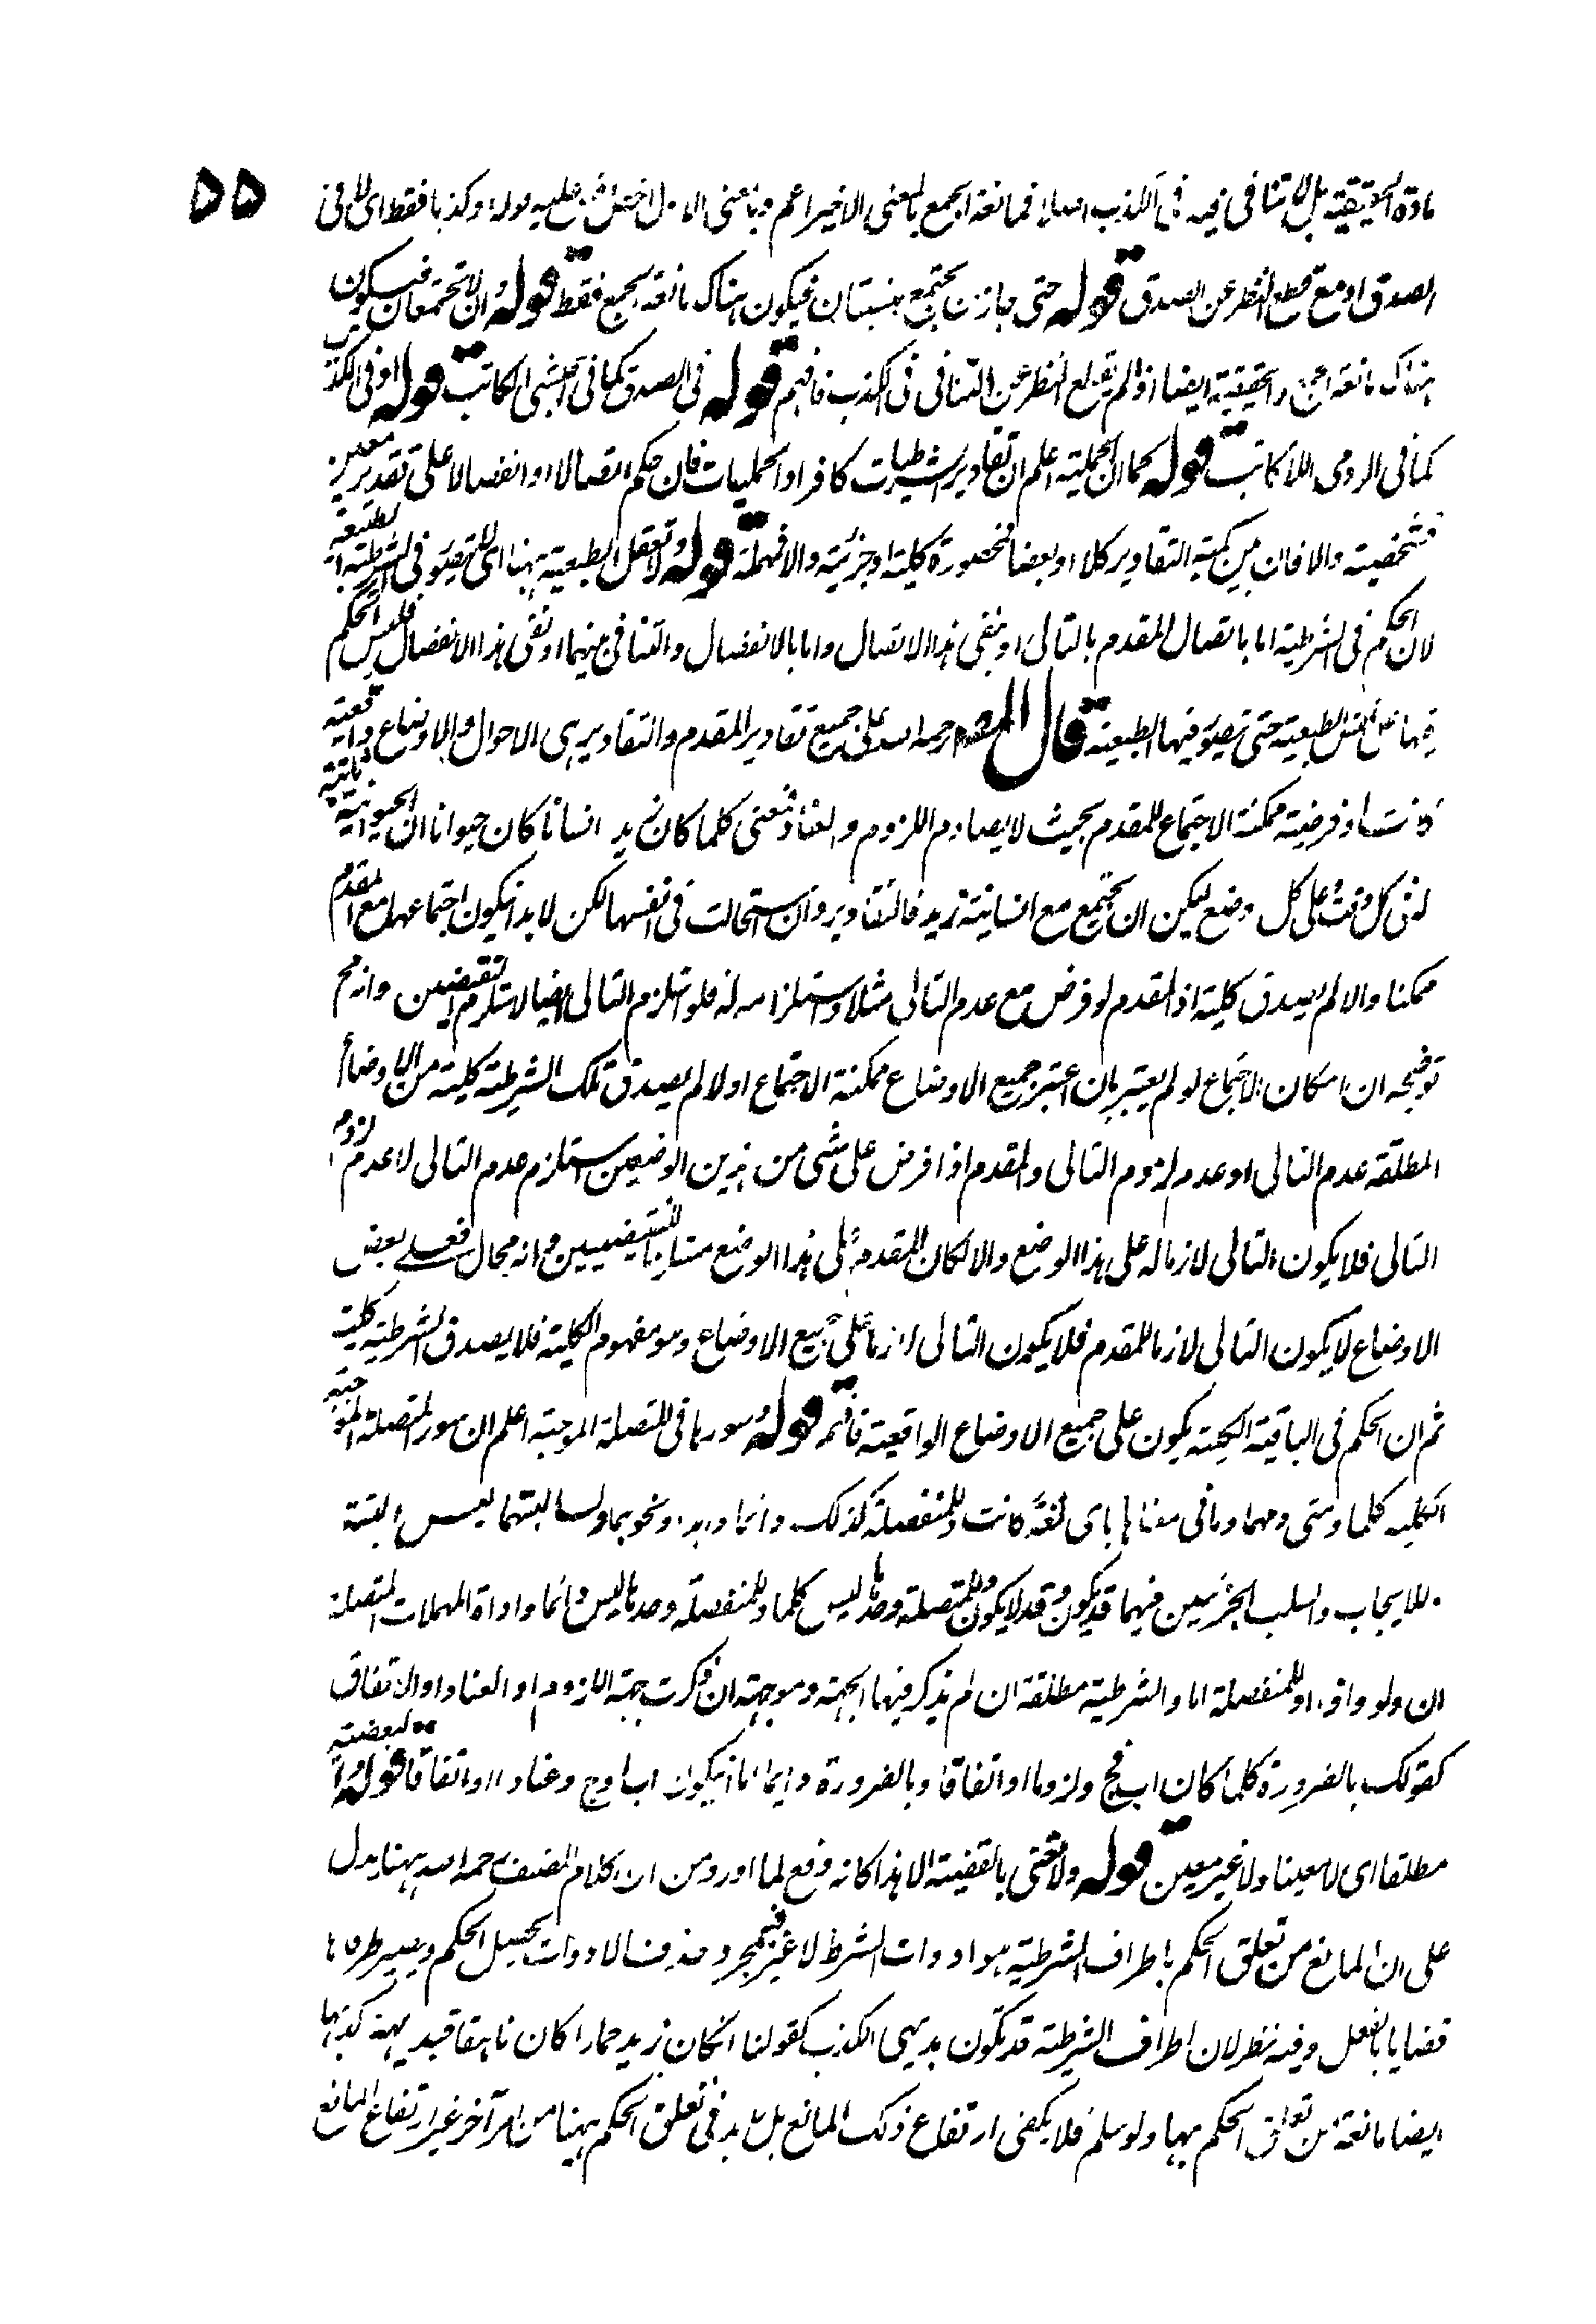 ۵۵
مادة الحقيقية بل لا تنافى فيه فى الكذب اصلا فمانعة الجمع بالمعنى الاخير اعم وبالمعنى الاول اخص قوله وكذبا فقط اى لا فى
الصدق او مع قطع النظر عن الصدق قوله حتى جاز ان يجتمع فيكون هناك مانعة الجمع فقط قوله ان لا تجتمعان فيكون
هناك مانعة الجمع والحقيقية ايضا اذ لم يقطع النظر عن التنافى فى الكذب فافهم قوله فى الصدق كما فى الحبشى الكاتب قوله او فى الكذب
كما فى الرومى اللاكاتب قوله كما ان الحملية اعلم ان تقادير الشرطيات كافراد الحمليات فان حكم اتصالا او انفصالا على تقدير معين
فشخصية والا فان بين كمية التقادير كلا او بعضا فمحصورة كلية او جزئية والا فمهملة قوله ولا تعقل الطبعية ههنا اى لا تتصور فى الشرطية الطبعية
لان الحكم فى الشرطية اما باتصال المقدم بالتالى او بنفى هذا الاتصال واما بالانفصال والتنافى بينهما او نفى هذا الانفصال فليس الحكم
فيها على نفس الطبعية حتى تتصور فيها الطبعية قال المصنف رحمه الله على جميع تقادير المقدم والتقادير هى الاحوال والاوضاع واقعية
كانت او فرضية ممكنة الاجتماع للمقدم بحيث لا يصادم اللزوم والعناد فمعنى كلما كان زيد انسانا كان حيوانا ان الحيوانية ثابتة
فى كل وقت وعلى كل وضع يمكن ان يجتمع مع انسانية زيد فالتقادير وان استحالت فى انفسها لكن لا بد ان يكون اجتماعها مع المقدم
ممكنا والا لم يصدق كلية اذ المقدم لو فرض مع عدم التالى مثلا واستلزامه له فلو استلزم التالى ايضا لاستلزم النقيضين وانه مح
توضيحه ان امكان الاجتماع لو لم يعتبر بان اعتبر جميع الاوضاع ممكنة الاجتماع او لا لم يصدق تلك الشرطية كلية من الاوضاع
المطلقة عدم التالى او عدم لزوم التالى والمقدم اذا فرض على شى من هذين الوضعين استلزم عدم التالى لا عدم لزوم
التالى فلا يكون التالى لازما له على هذا الوضع والا لكان المقدم على هذا الوضع مستلزما للنقيضين وانه محال فعلى بعض
الاوضاع لا يكون التالى لازما للمقدم فلا يكون التالى لازما على جميع الاوضاع وهو مفهوم الكلية فلا يصدق الشرطية كلية
ثم ان الحكم فى الباقية يكون على جميع الاوضاع الواقعية فافهم قوله وسورها فى المتصلة الموجبة اعلم ان سور المتصلة الموجبة
الكلية كلما ومتى ومهما وما فى معناها باى لغة كانت وللمنفصلة كذلك دائما وابدا ونحوهما ولسالبتهما ليس البتة
للايجاب والسلب الجزئيين فيهما قد يكون وقد لا يكون وللمتصلة وحدها ليس كلما وللمنفصلة وحدها ليس دائما واداة المهملات المتصلة
ان ولو واذ واو للمنفصلة اما والشرطية مطلقة ان لم يذكر فيها الجهة وموجهة ان ذكرت جهة اللزوم او العناد او الاتفاق
كقولك بالضرورة كلما كان اب فج د لزوما او اتفاقا وبالضرورة دائما اما ان يكون اب او ج د عنادا او اتفاقا قوله او لبعضية
مطلقا اى لا معينا ولا غير معين قوله ولا نعنى بالقضية الا هذا كانه دفع لما اورد من ان كلام المصنف رحمه الله ههنا يدل
على ان المانع من تعلق الحكم باطراف الشرطية هو ادوات الشرط لا غير فبمجرد حذف الادوات يحصل الحكم ويصير طرفاها
قضايا بالفعل وفيه نظر لان اطراف الشرطية قد تكون بديهى الكذب كقولنا ان كان زيد حمارا كان ناهقا فبديهة كذبها
ايضا مانعة من تعلق الحكم بها ولو سلم فلا يكفى ارتفاع ذلك المانع بل لا بد فى تعلق الحكم ههنا من امر آخر غير ارتفاع المانع